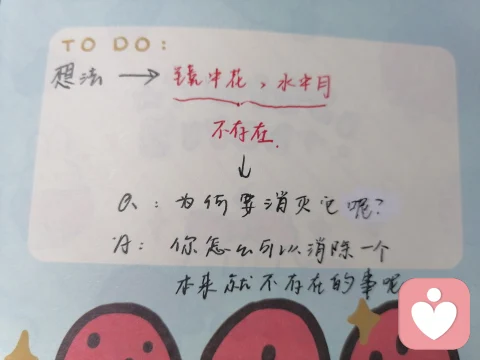 TO DO:
想法 → 镜中花，水中月
不存在.
↓
Q: 为何要消灭它呢?
A: 你怎么可以消除一个
本来就不存在的事呢